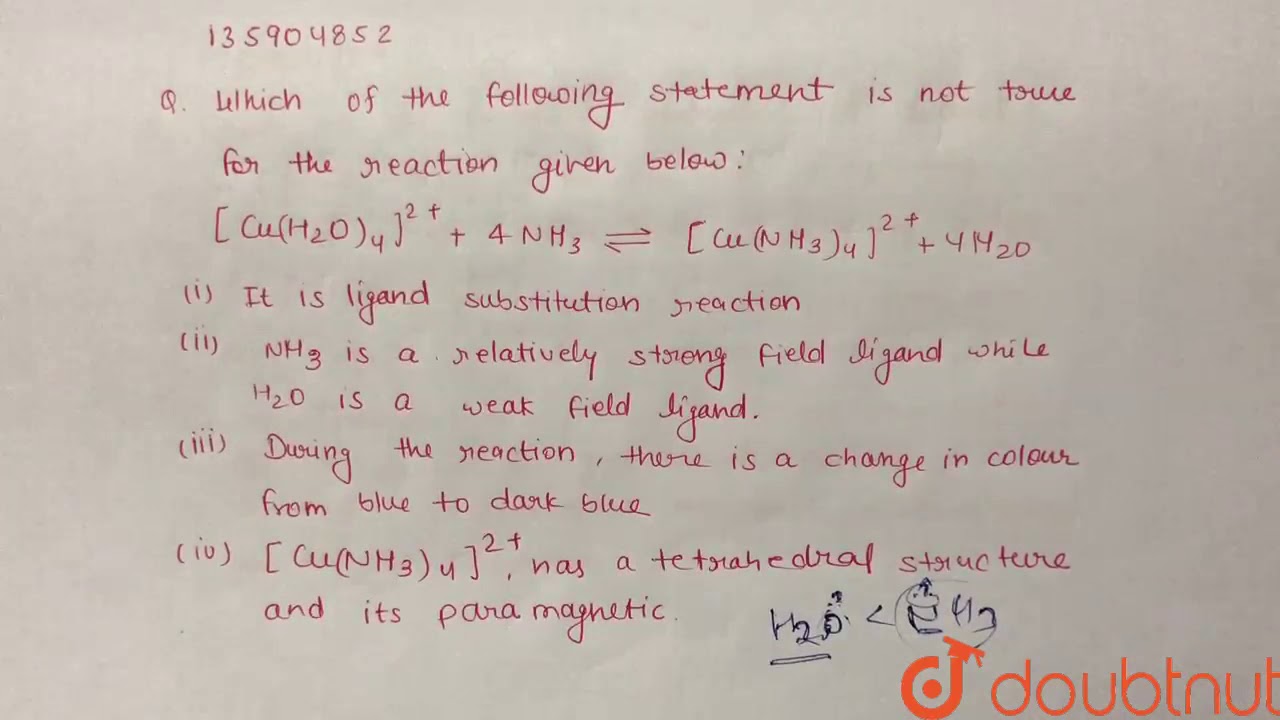 135904852
Q. Which of the following statement is not true
for the reaction given below:
[Cu(H2O)4]2+ + 4NH3 ⇌ [Cu(NH3)4]2+ + 4H2O
(i) It is ligand substitution reaction
(ii) NH3 is a relatively strong field ligand while
H2O is a weak field ligand.
(iii) During the reaction, there is a change in colour
from blue to dark blue
(iv) [Cu(NH3)4]2+, has a tetrahedral structure
and its para magnetic.
H2O <
doubtnut